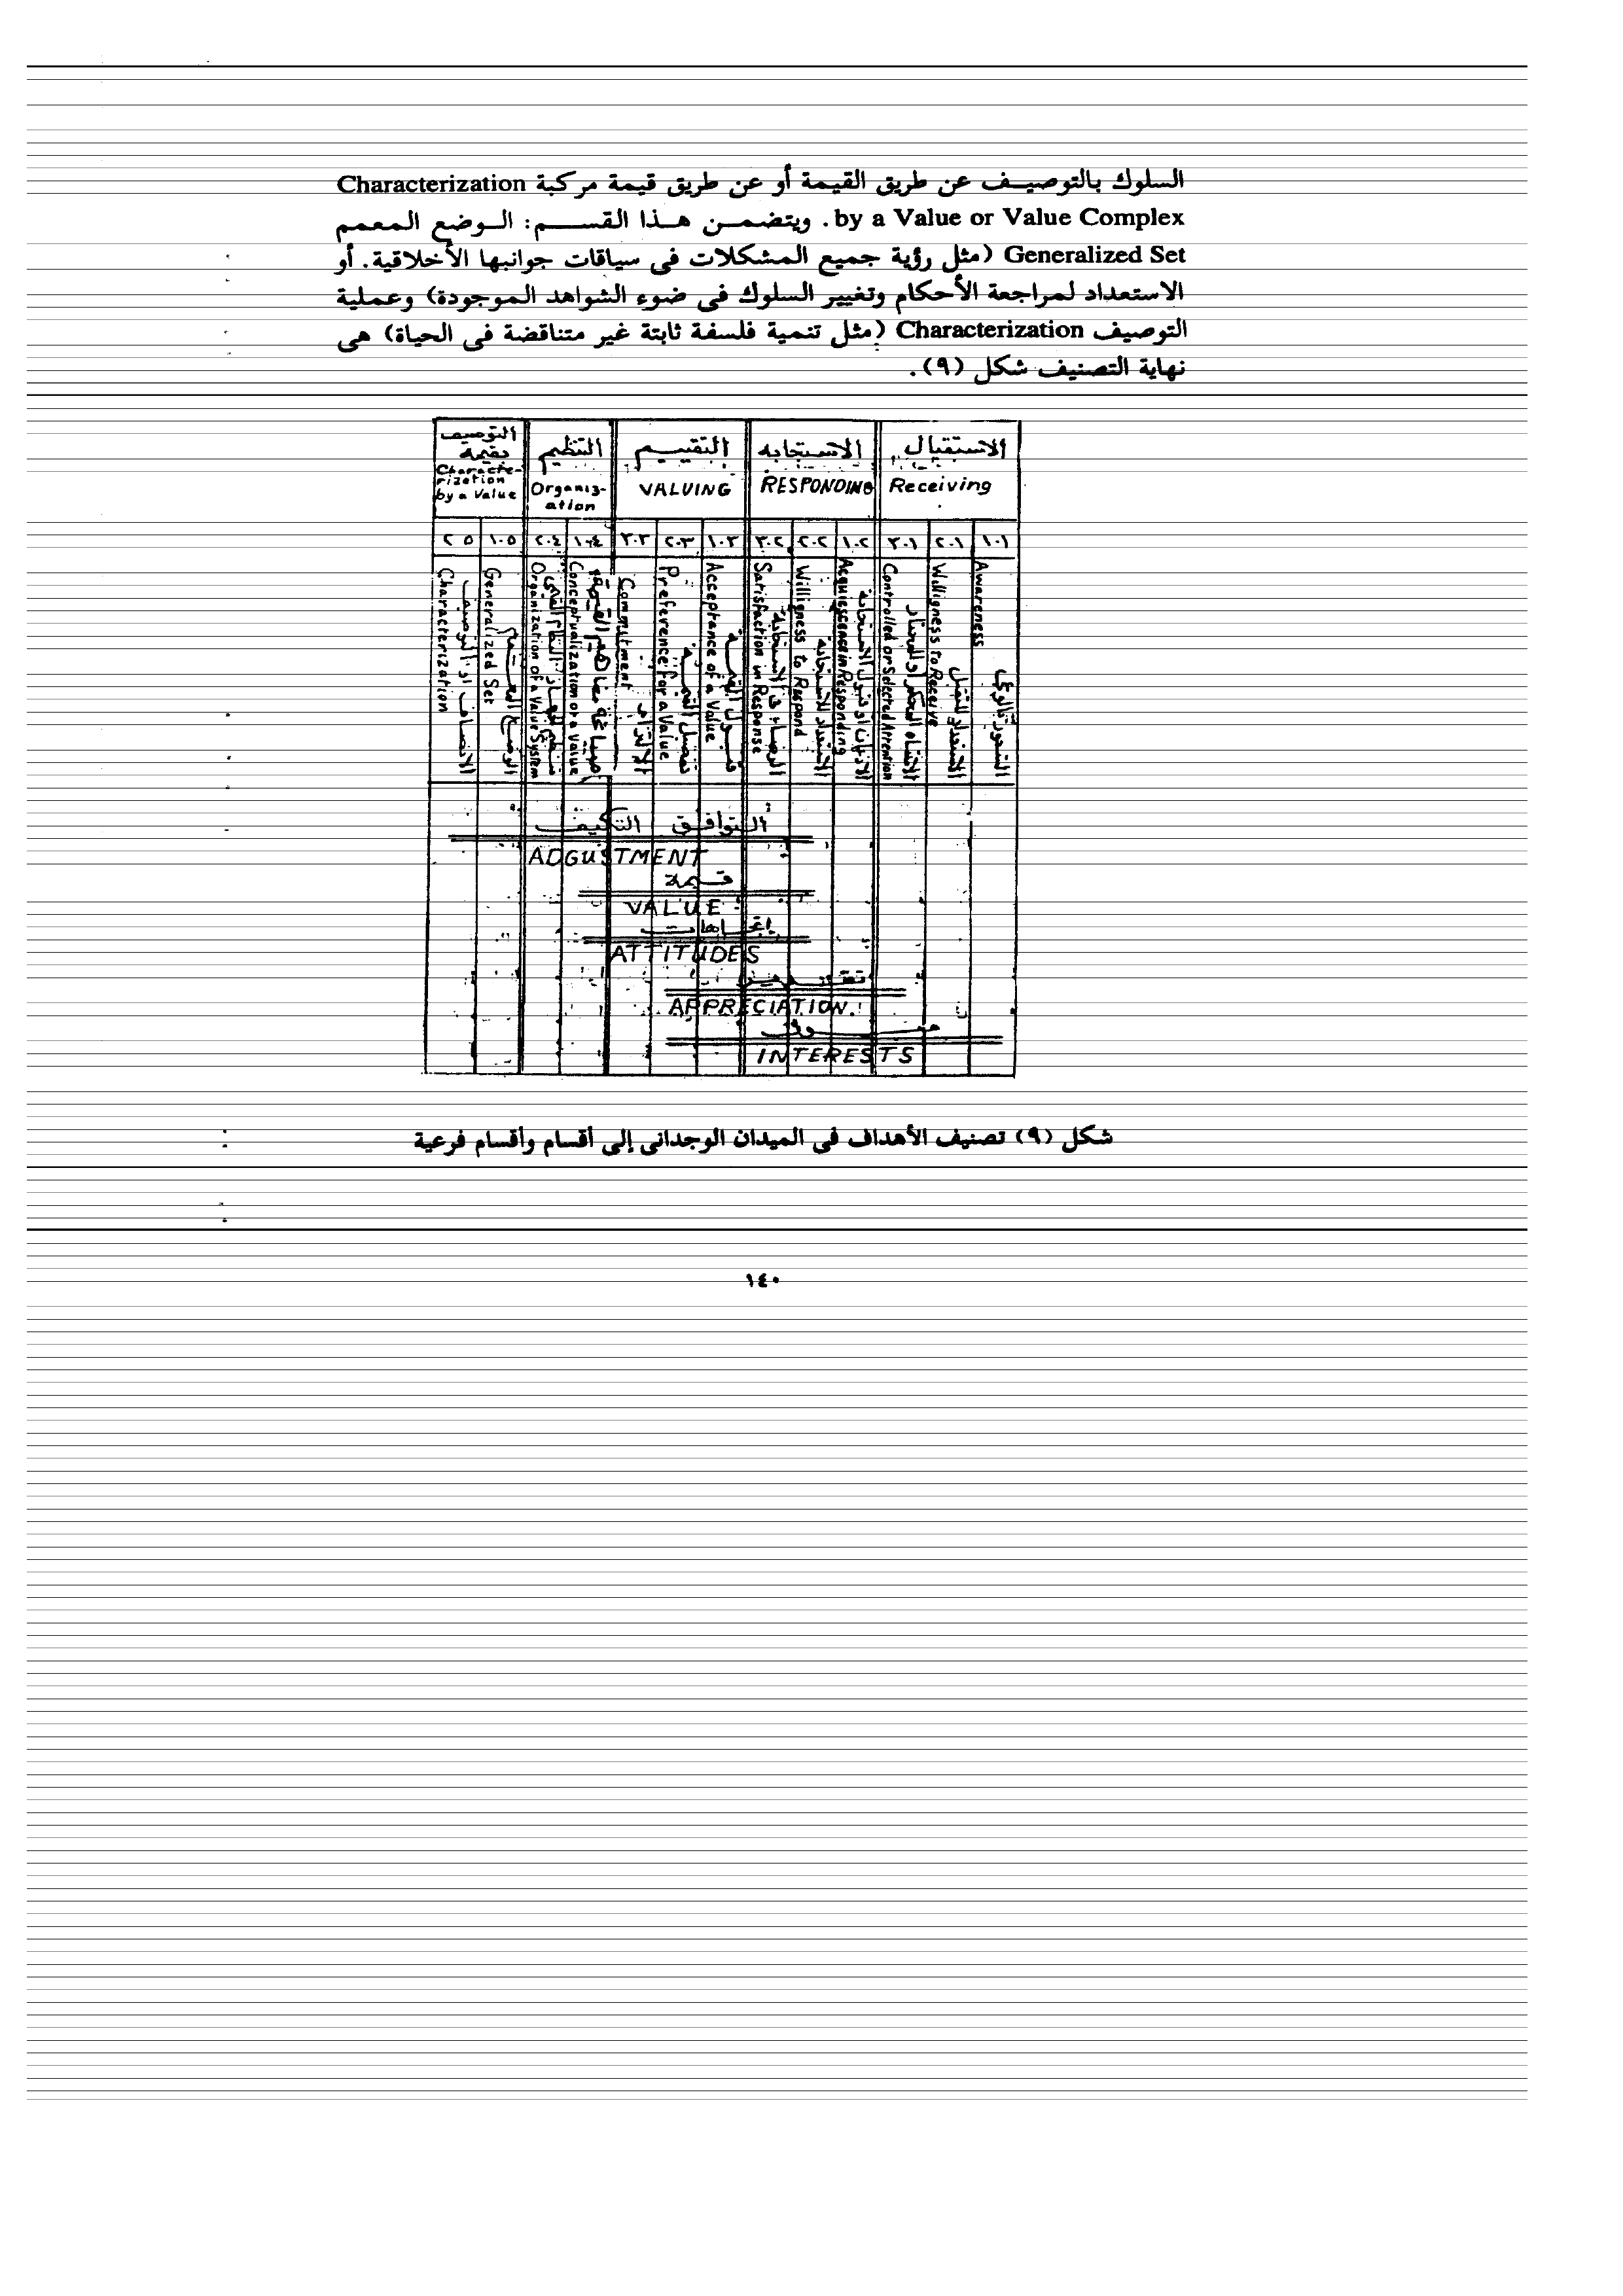 السلوك بالتوصيف عن طريق القيمة أو عن طريق قيمة مركبة Characterization
by a Value or Value Complex. ويتضمن هذا القسم: الوضع المعمم
Generalized Set (مثل رؤية جميع المشكلات فى سياقات جوانبها الأخلاقية. أو
الاستعداد لمراجعة الأحكام وتغيير السلوك فى ضوء الشواهد الموجودة) وعملية
التوصيف Characterization (مثل تنمية فلسفة ثابتة غير متناقضة فى الحياة) هى
نهاية التصنيف شكل (٩).
الاستقبال
Receiving
الاستجابه
RESPONDING
التقييم
VALUING
التنظيم
Organiz-
ation
التوصيف
بقيمه
Characte-
rization
by a Value
١٠١
٢٠١
٣٠١
١٠٢
٢٠٢
٣٠٢
١٠٣
٢٠٣
٣٠٣
١٠٤
٢٠٤
١٠٥
٢ ٥
Awareness
الشعور بالوعى
Willigness to Receive
الاستعداد للتقبل
Controlled or Selected Attention
Acquiescence in Responding
Willigness to Respond
الاستعداد للاستجابة
Satisfaction in Response
Acceptance of a Value
قبول القيمة
Preference for a Value
تفضيل القيمة
Commitment
الالتزام
Conceptualization of a Value
صياغة مفاهيم القيمة
Organization of a Value System
Generalized Set
Characterization
التوافق التكيف
ADGUSTMENT
قيمة
VALUE
إتجاهات
ATTITUDES
APPRECIATION
INTERESTS
شكل (٩) تصنيف الأهداف فى الميدان الوجدانى إلى أقسام وأقسام فرعية
١٤٠